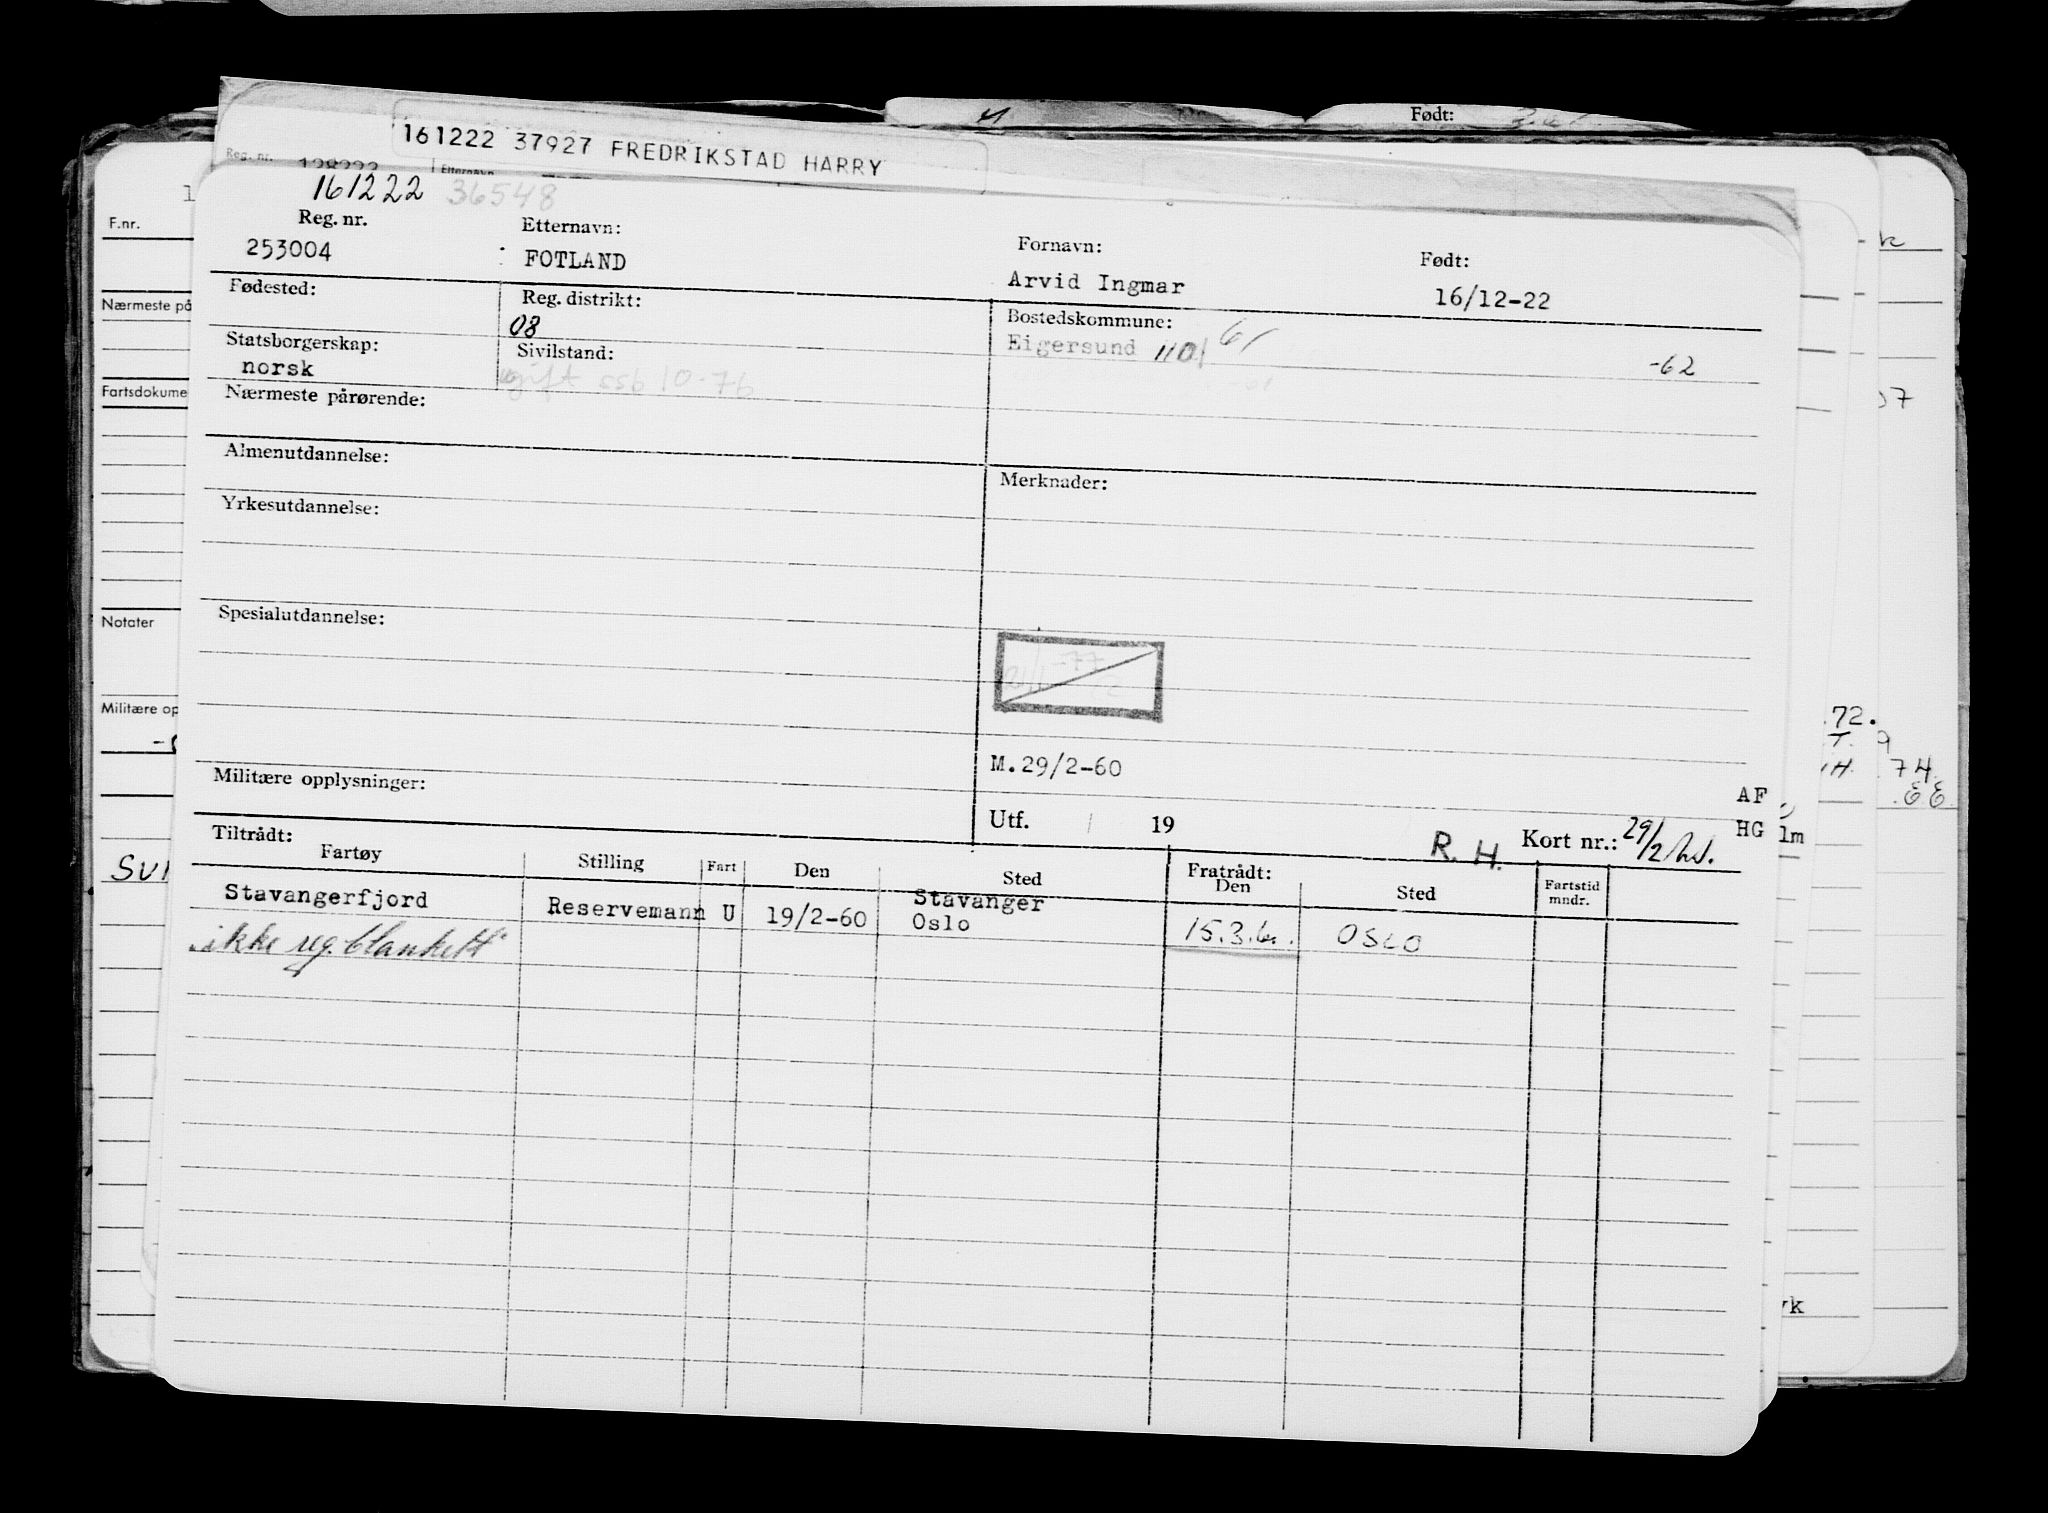 Født:
161222 37927 FREDRIKSTAD HARRY
Reg. nr. 128223 Etternavn
161222 36548
F.nr.
Reg. nr. Etternavn: Fornavn: Født:
253004 FOTLAND Arvid Ingmar 16/12-22
Fødested: Reg. distrikt: Bostedskommune:
08 Eigersund 1101 61
Nærmeste på
Statsborgerskap: Sivilstand:
norsk ugift ssb 10-76 -62
61
Fartsdokume
Nærmeste pårørende:
07
Almenutdannelse:
Merknader:
Yrkesutdannelse:
Spesialutdannelse:
Notater
-77
Militære op
72.
74.
M.29/2-60
Militære opplysninger:
AF
Utf. / 19
HG lm
R. H. Kort nr.: 29/2
Tiltrådt: Fratrådt:
Fartøy Stilling Fart Den Sted Den Sted Fartstid mndr.
Stavangerfjord Reservemann U 19/2-60 Stavanger
Oslo 15.3.60. OSLO
ikke reg. blankett
vk